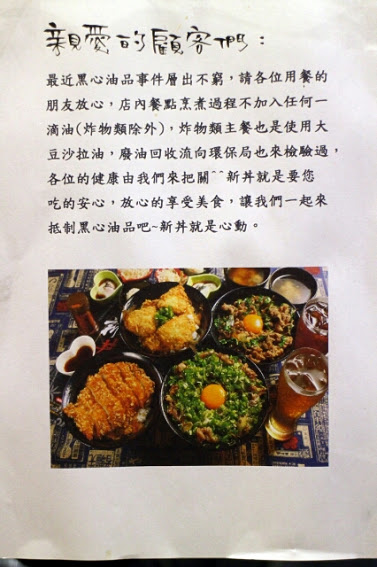 親愛的顧客們：
最近黑心油品事件層出不窮，請各位用餐的
朋友放心，店內餐點烹煮過程不加入任何一
滴油(炸物類除外)，炸物類主餐也是使用大
豆沙拉油，廢油回收流向環保局也來檢驗過，
各位的健康由我們來把關^^新丼就是要您
吃的安心，放心的享受美食，讓我們一起來
抵制黑心油品吧~新丼就是心動。